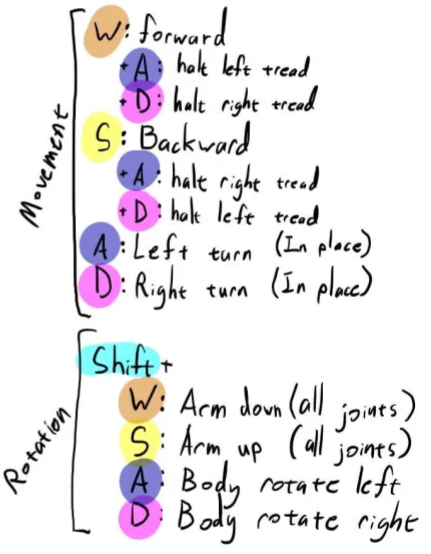 Movement
W: forward
+A: halt left tread
+D: halt right tread
S: Backward
+A: halt right tread
+D: halt left tread
A: Left turn (In place)
D: Right turn (In place)
Rotation
Shift+
W: Arm down (all joints)
S: Arm up (all joints)
A: Body rotate left
D: Body rotate right